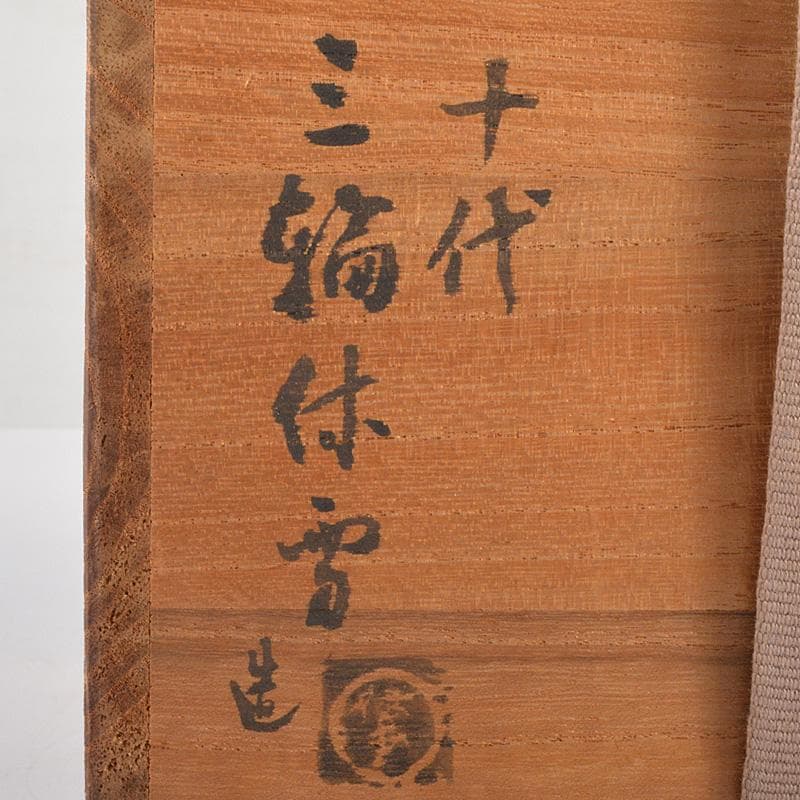 十代
三輪休雪
造